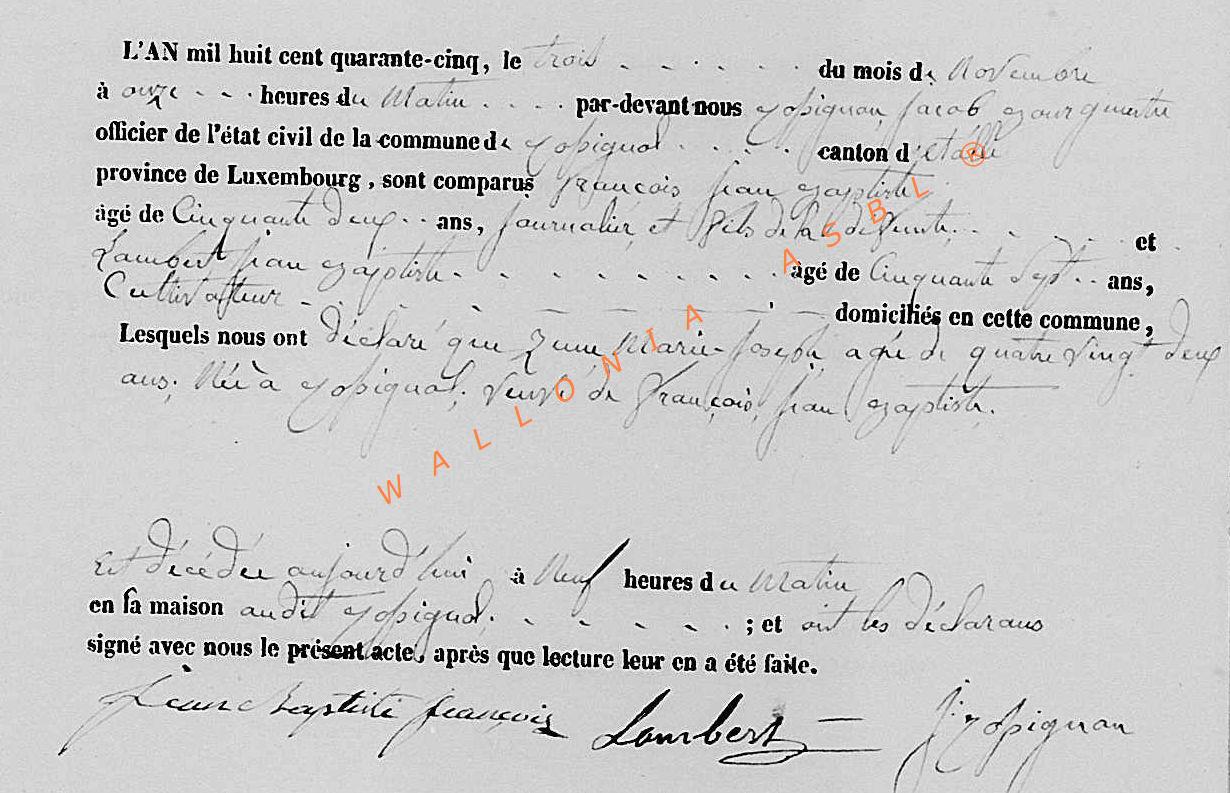 L'AN mil huit cent quarante-cinq, le trois - - - - - du mois de Novembre
à onze - - - heures du Matin - - - - par-devant nous Jacob
officier de l'état civil de la commune de - - - - canton d'étalle
province de Luxembourg, sont comparus françois jean Baptiste
âgé de Cinquante deux - - ans, journalier, et fils de la défunte - - - - et
Lambert jean Baptiste - - - - - - - - âgé de Cinquante sept - - ans,
Cultivateur - - - - - - domiciliés en cette commune,
Lesquels nous ont déclaré que Marie-Joseph, agée de quatre vingt deux
ans, Née à veuve de françois, jean Baptiste.
Est décédée aujourd'hui à Neuf heures du Matin
en sa maison audit - - - - - ; et ont les déclarans
signé avec nous le présent acte, après que lecture leur en a été faite.
Jean Baptiste françois Lambert
WALLONIA ASBL ®